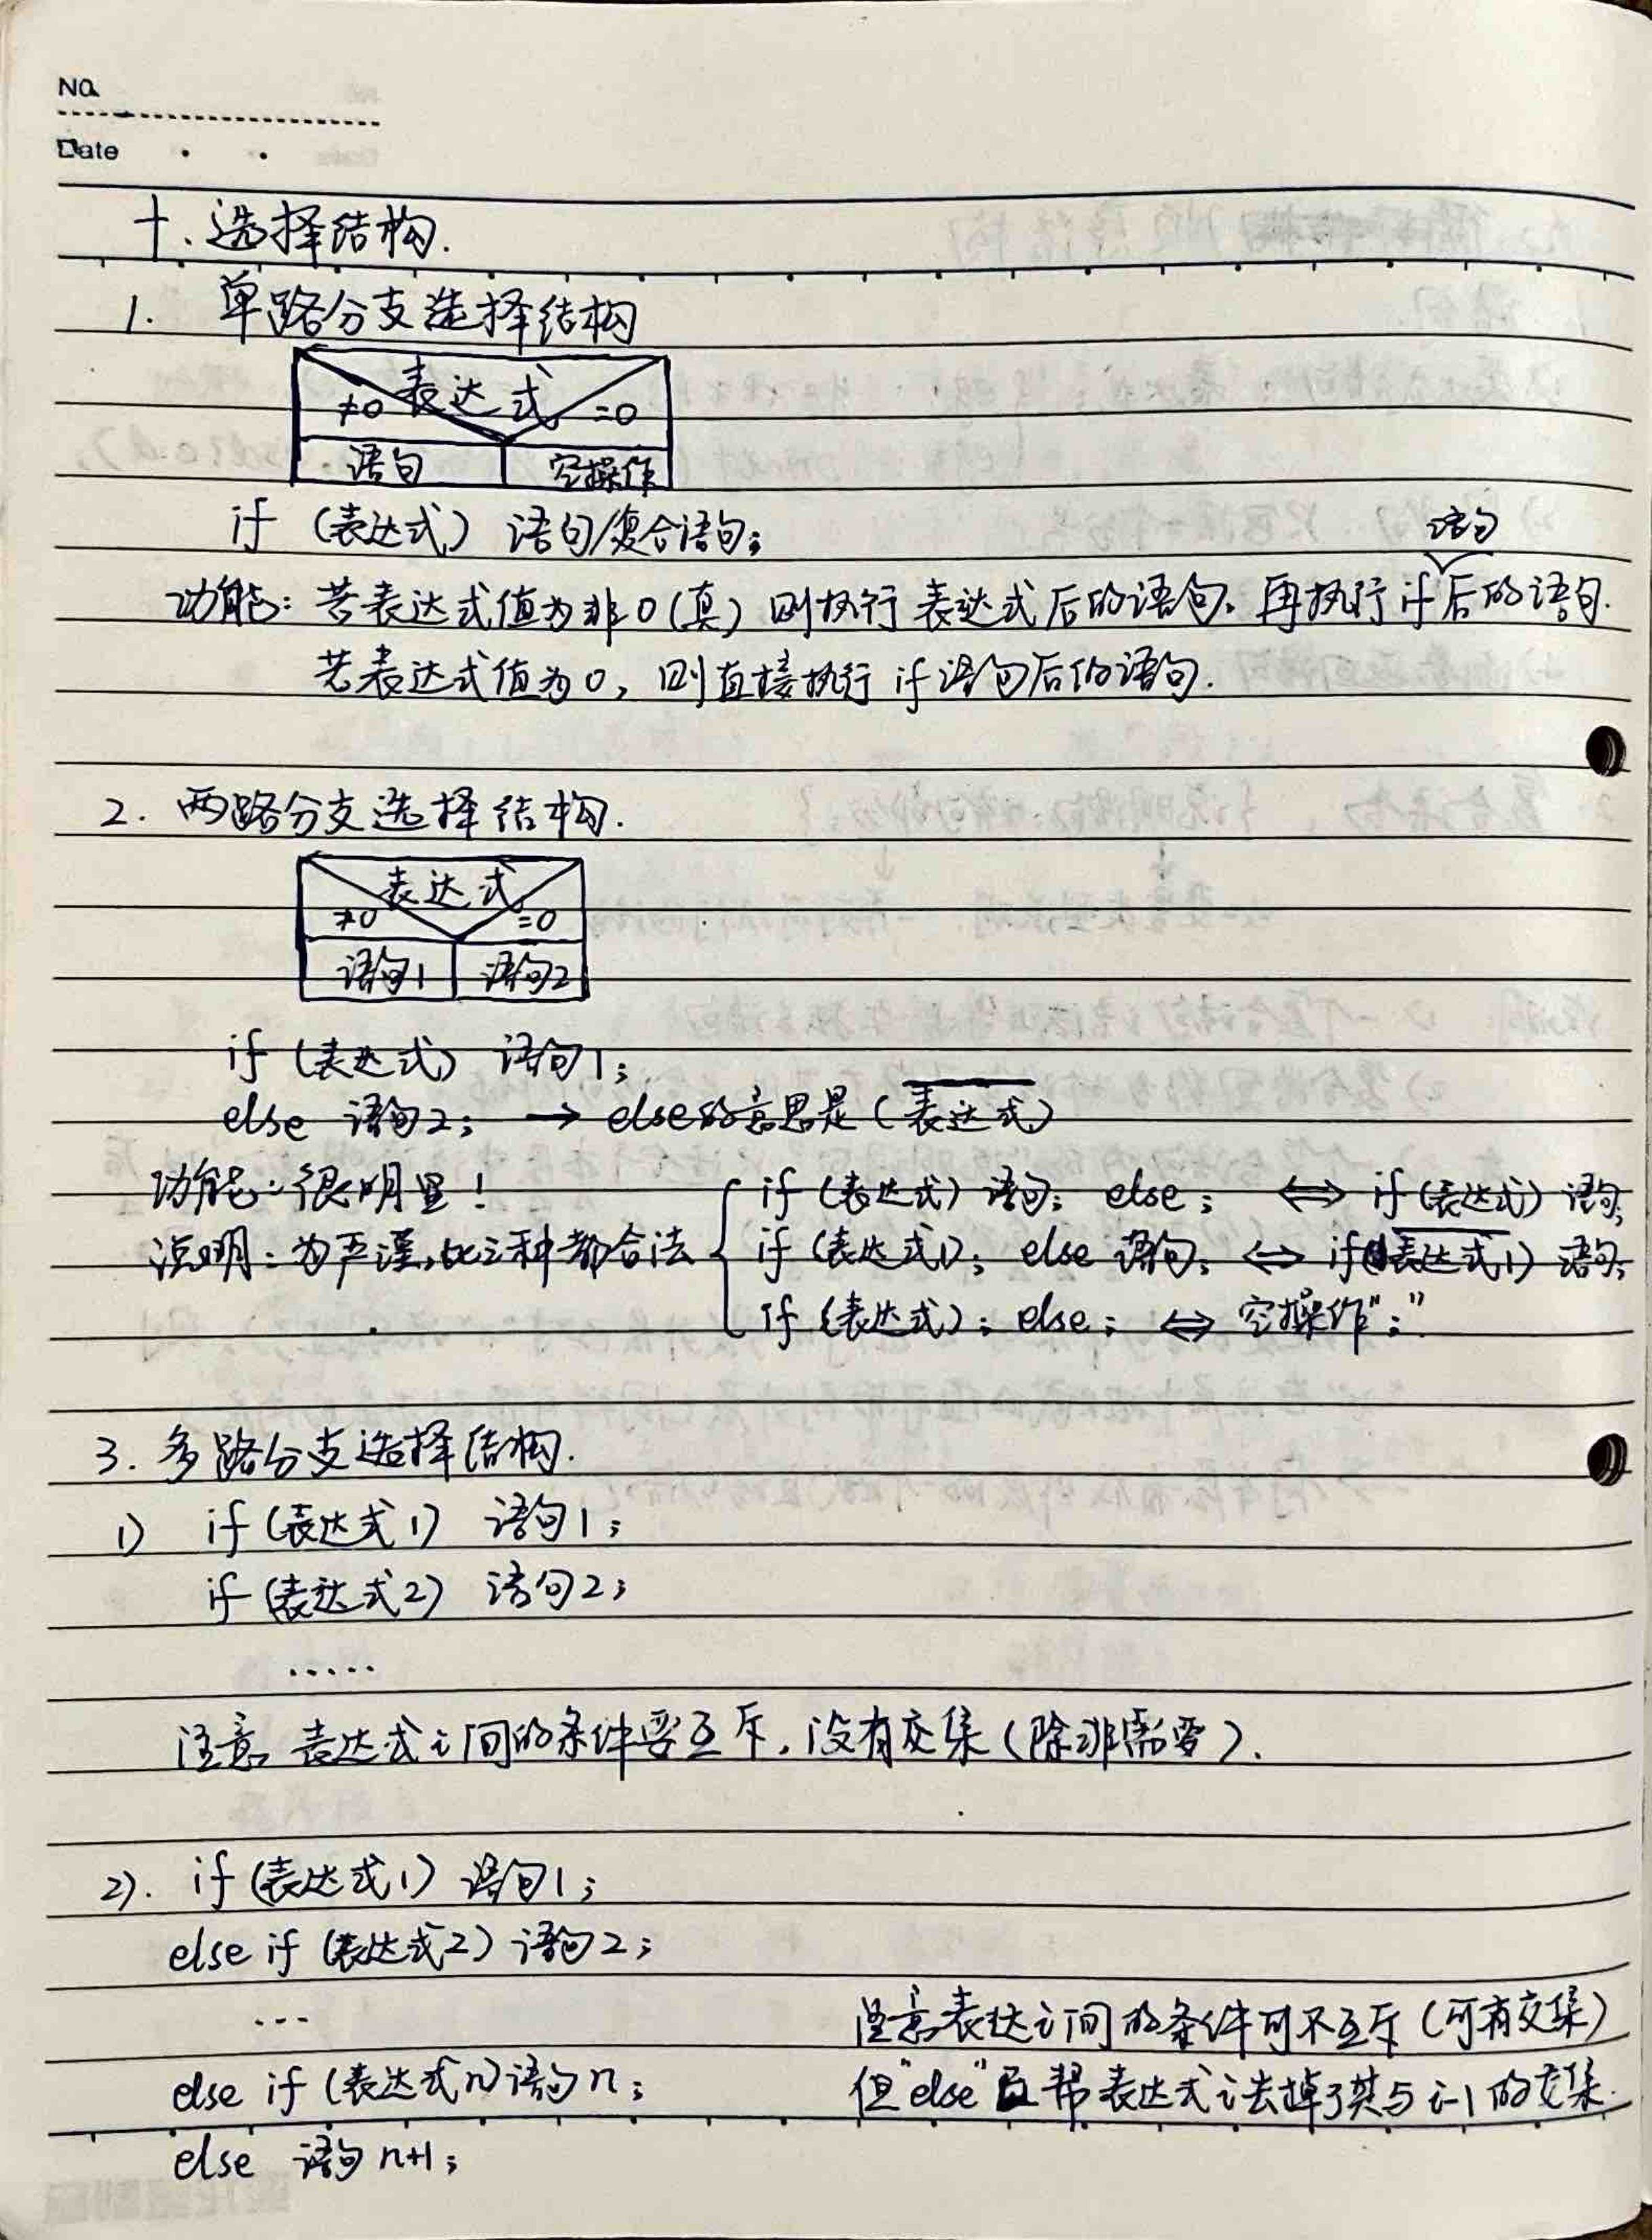 No.
Date
十、选择结构.
1. 单路分支选择结构
表达式
≠0 =0
语句 空操作
if (表达式) 语句/复合语句;
语句
功能: 若表达式值为非0(真) 则执行表达式后的语句. 再执行if后的语句.
若表达式值为0, 则直接执行if语句后的语句.
2. 两路分支选择结构.
表达式
≠0 =0
语句1 语句2
if (表达式) 语句1;
else 语句2; → else的意思是(表达式)
功能: 很明显!
说明: 为严谨,此三种都合法
if (表达式) 语句; else ; ⇔ if (表达式) 语句;
if (表达式1); else 语句; ⇔ if(表达式1) 语句;
if (表达式); else; ⇔ 空操作";"
3. 多路分支选择结构.
1) if (表达式1) 语句1;
if (表达式2) 语句2;
.....
注意 表达式i间的条件要互斥, 没有交集(除非需要).
2). if (表达式1) 语句1;
else if (表达式2) 语句2;
...
注意表达i间的条件可不互斥(可有交集)
else if (表达式n) 语句n;
但"else" 帮表达式i去掉了其与i-1的交集.
else 语句n+1;